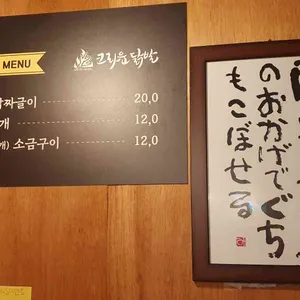 MENU
그리운 닭발
짜글이 20,0
개 12,0
개) 소금구이 12,0
のおかげでぐち
もこぼせる